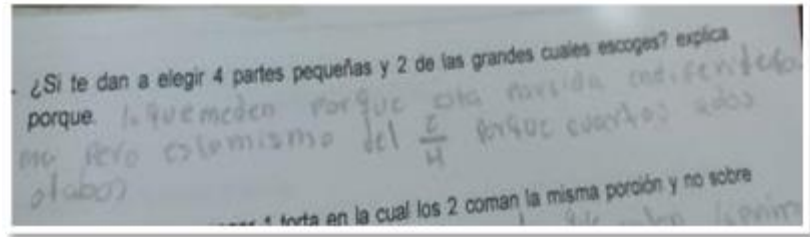 . ¿Si te dan a elegir 4 partes pequeñas y 2 de las grandes cuales escoges? explica
porque. lo que me den Porque esta partida en diferente fo
ma Pero es lo mismo del 2/4 Porque cuartos
1 torta en la cual los 2 coman la misma porción y no sobre